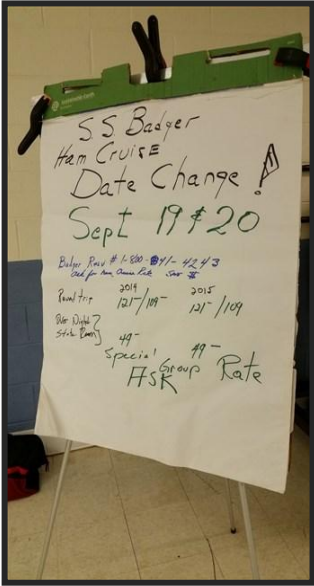 S.S. Badger
Ham Cruise
Date Change!
Sept 19 & 20
Badger Resv # 1-800-841-4243
Ask for Ham Cruise Rate Save
2014 2015
Round trip 121-/109- 121-/109
Over Night
State Room} 49- 49-
Special Group Rate
ASK